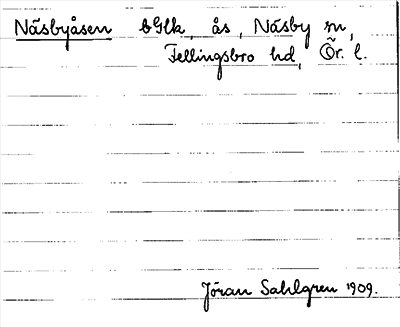 Näsbyåsen bGlk, ås, Näsby sn,
Fellingsbro hd, Ör. l.
Jöran Sahlgren 1909.